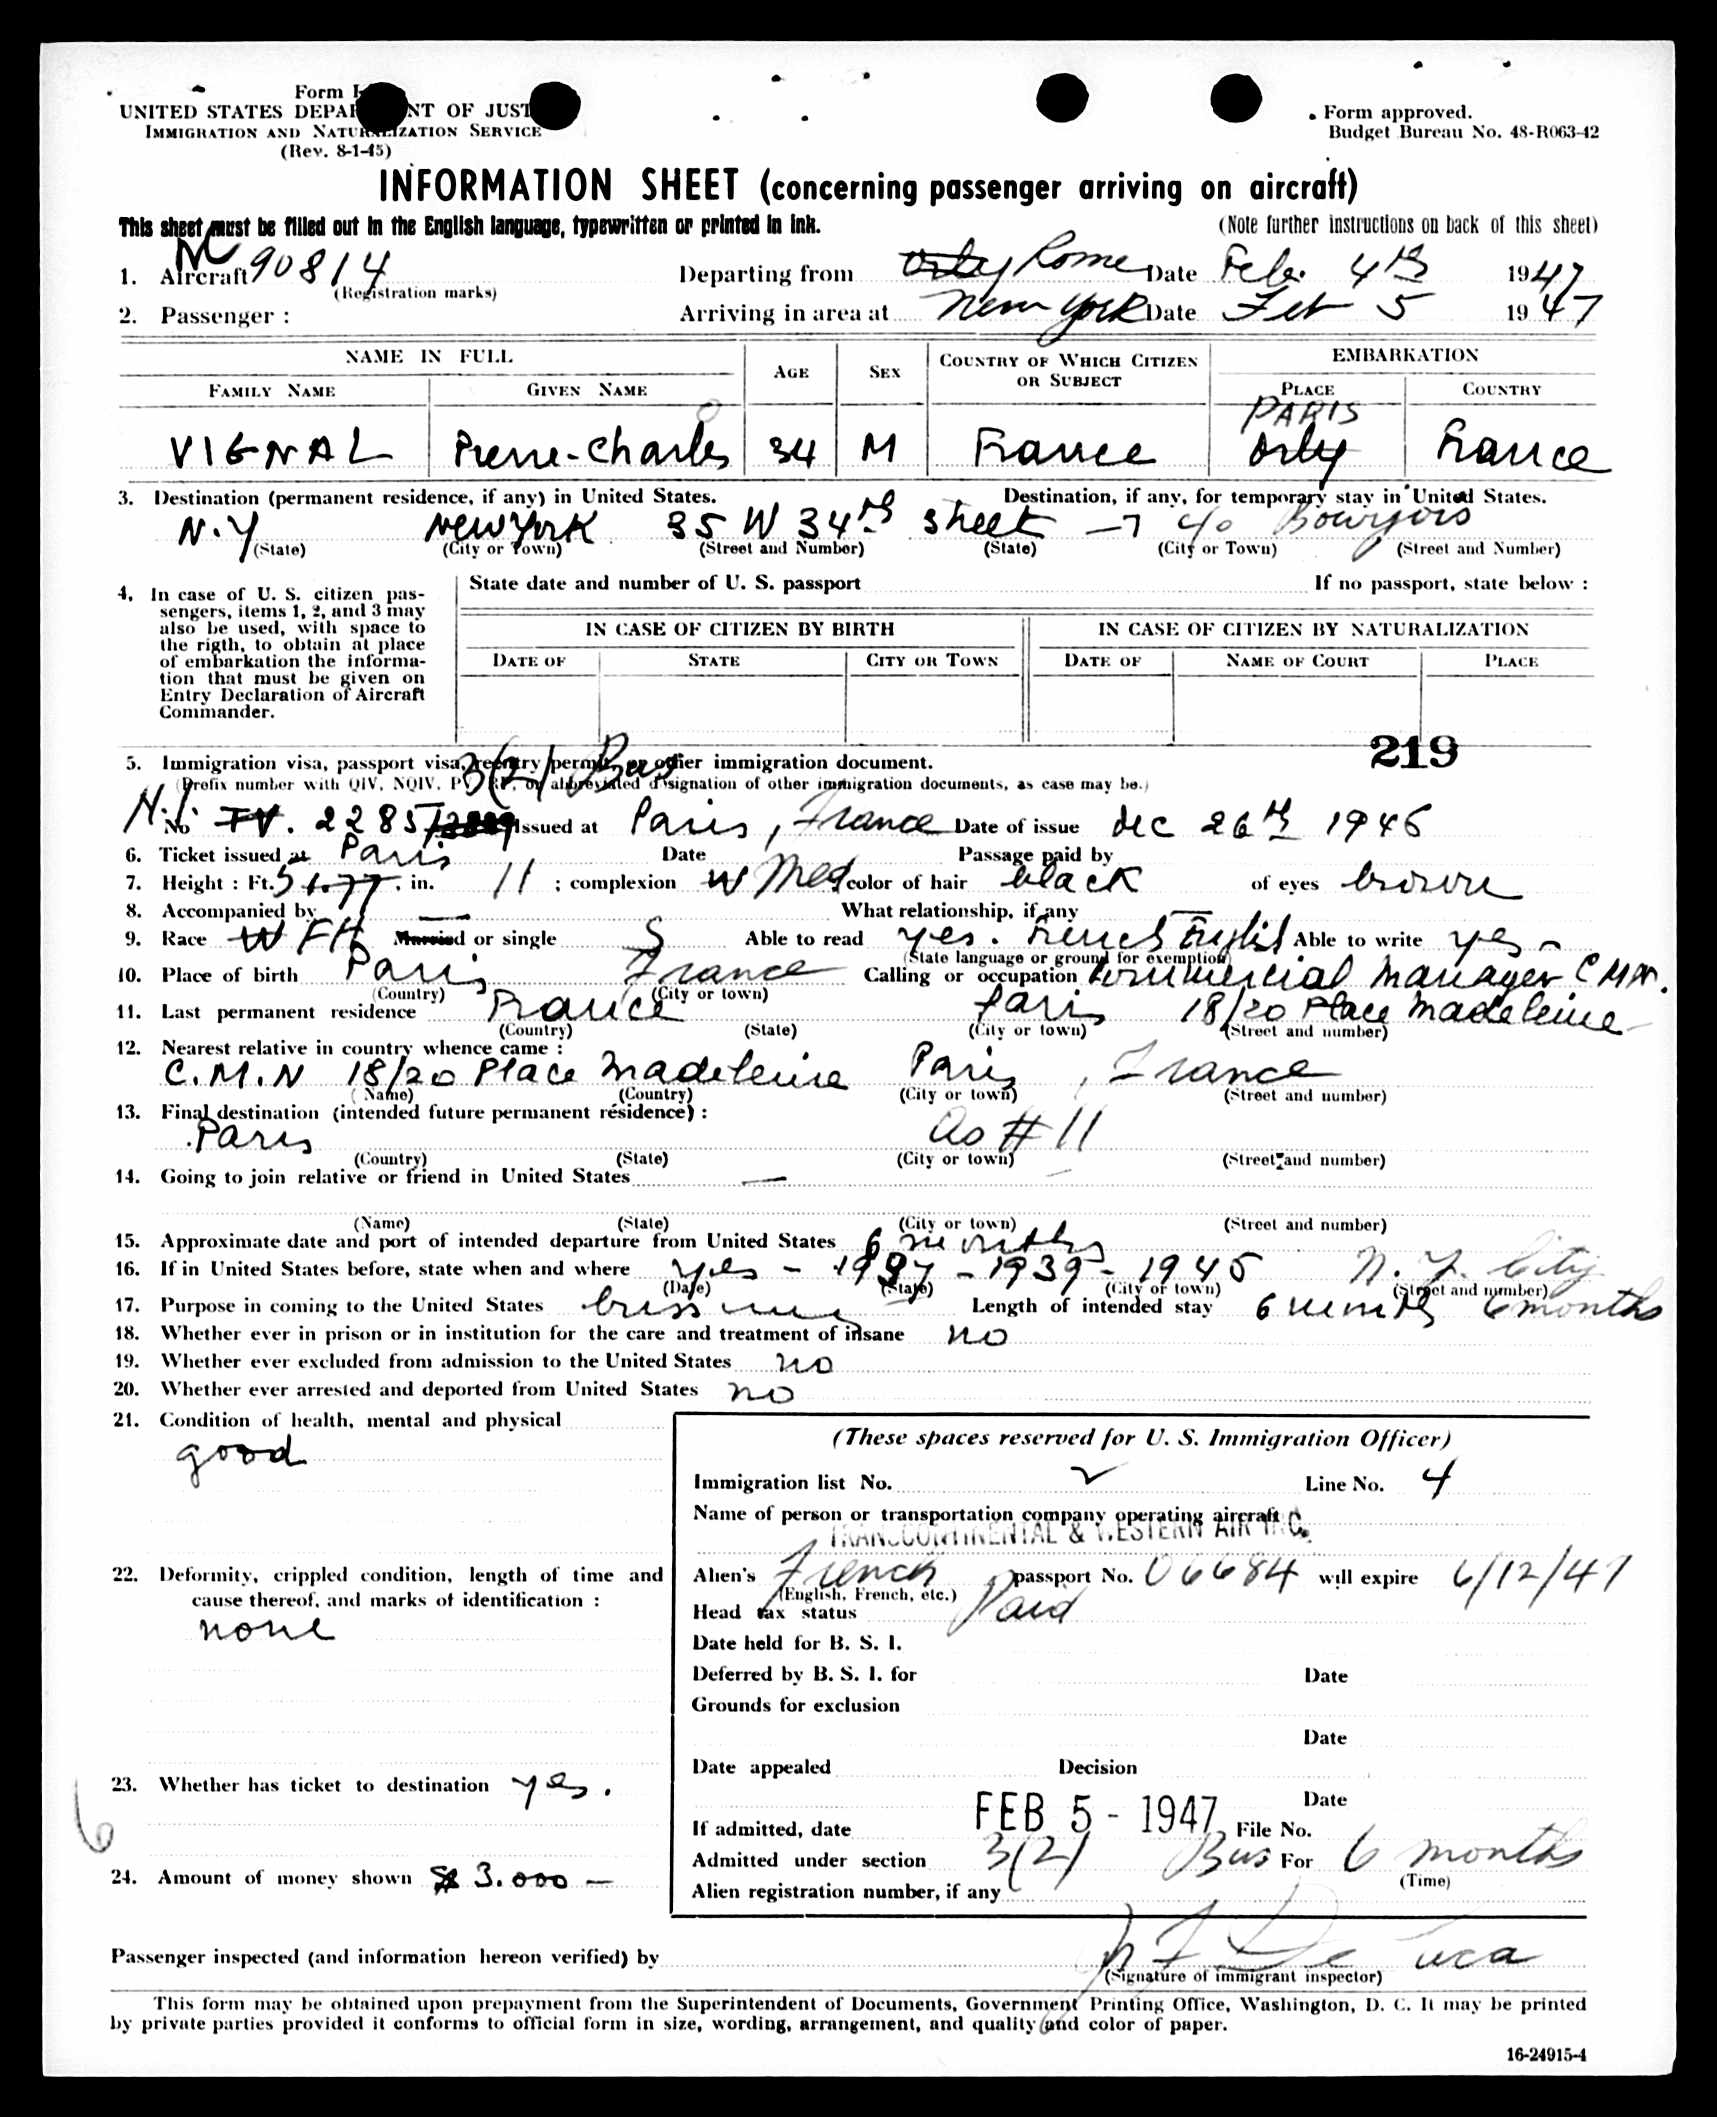 Form I
UNITED STATES DEPAR NT OF JUST
IMMIGRATION AND NATURALIZATION SERVICE
(Rev. 8-1-45)
Form approved.
Budget Bureau No. 48-R063-42
INFORMATION SHEET (concerning passenger arriving on aircraft)
This sheet must be filled out in the English language, typewritten or printed in ink.
(Note further instructions on back of this sheet)
1. Aircraft NC 90814 Departing from Orly Rome Date Feb. 4th 1947
(Registration marks)
2. Passenger : Arriving in area at New York Date Feb 5 1947
NAME IN FULL AGE SEX COUNTRY OF WHICH CITIZEN OR SUBJECT EMBARKATION
FAMILY NAME GIVEN NAME PLACE COUNTRY
PARIS
VIGNAL Pierre-Charles 34 M France Orly France
3. Destination (permanent residence, if any) in United States. Destination, if any, for temporary stay in United States.
N.Y New York 35 W 34th Street c/o Bourjois
(State) (City or Town) (Street and Number) (State) (City or Town) (Street and Number)
4. In case of U. S. citizen pas-
sengers, items 1, 2, and 3 may
also be used, with space to
the rigth, to obtain at place
of embarkation the informa-
tion that must be given on
Entry Declaration of Aircraft
Commander.
State date and number of U. S. passport If no passport, state below :
IN CASE OF CITIZEN BY BIRTH IN CASE OF CITIZEN BY NATURALIZATION
DATE OF STATE CITY OR TOWN DATE OF NAME OF COURT PLACE
219
3(2) Bus
5. Immigration visa, passport visa, reentry permit, or other immigration document.
(Prefix number with QIV, NQIV, PV, RP, or abbreviated designation of other immigration documents, as case may be.)
N.I. No TV. 2285 Issued at Paris, France Date of issue dec 26th 1946
6. Ticket issued at Paris Date Passage paid by
7. Height : Ft. 5 1.77 in. 11 ; complexion W Med color of hair black of eyes brown
8. Accompanied by — What relationship, if any —
9. Race W FH Married or single S Able to read yes. French English Able to write yes -
(State language or ground for exemption)
10. Place of birth Paris France Calling or occupation Commercial Manager C M N.
(Country) (City or town)
11. Last permanent residence France Paris 18/20 Place Madeleine
(Country) (State) (City or town) (Street and number)
12. Nearest relative in country whence came :
C.M.N 18/20 Place Madeleine Paris, France
(Name) (Country) (City or town) (Street and number)
13. Final destination (intended future permanent résidence) :
Paris As # 11
(Country) (State) (City or town) (Street and number)
14. Going to join relative or friend in United States —
(Name) (State) (City or town) (Street and number)
15. Approximate date and port of intended departure from United States 6 months
16. If in United States before, state when and where yes - 1937 - 1939 - 1945 N. Y. City
(Date) (State) (City or town) (Street and number)
17. Purpose in coming to the United States business Length of intended stay 6 months 6 months
18. Whether ever in prison or in institution for the care and treatment of insane no
19. Whether ever excluded from admission to the United States no
20. Whether ever arrested and deported from United States no
21. Condition of health, mental and physical
good
22. Deformity, crippled condition, length of time and
cause thereof, and marks of identification :
none
23. Whether has ticket to destination yes.
6
24. Amount of money shown $ 3.000 —
(These spaces reserved for U. S. Immigration Officer)
Immigration list No. 2 Line No. 4
Name of person or transportation company operating aircraft
TRANSCONTINENTAL & WESTERN AIR INC.
Alien's French passport No. 06684 will expire 6/12/47
(English, French, etc.)
Head tax status Paid
Date held for B. S. I.
Deferred by B. S. I. for Date
Grounds for exclusion
Date
Date appealed Decision
Date
If admitted, date FEB 5 - 1947 File No.
Admitted under section 3(2) Bus For 6 months
(Time)
Alien registration number, if any
Passenger inspected (and information hereon verified) by De Luca
(Signature of immigrant inspector)
This form may be obtained upon prepayment from the Superintendent of Documents, Government Printing Office, Washington, D. C. It may be printed
by private parties provided it conforms to official form in size, wording, arrangement, and quality and color of paper.
16-24915-4